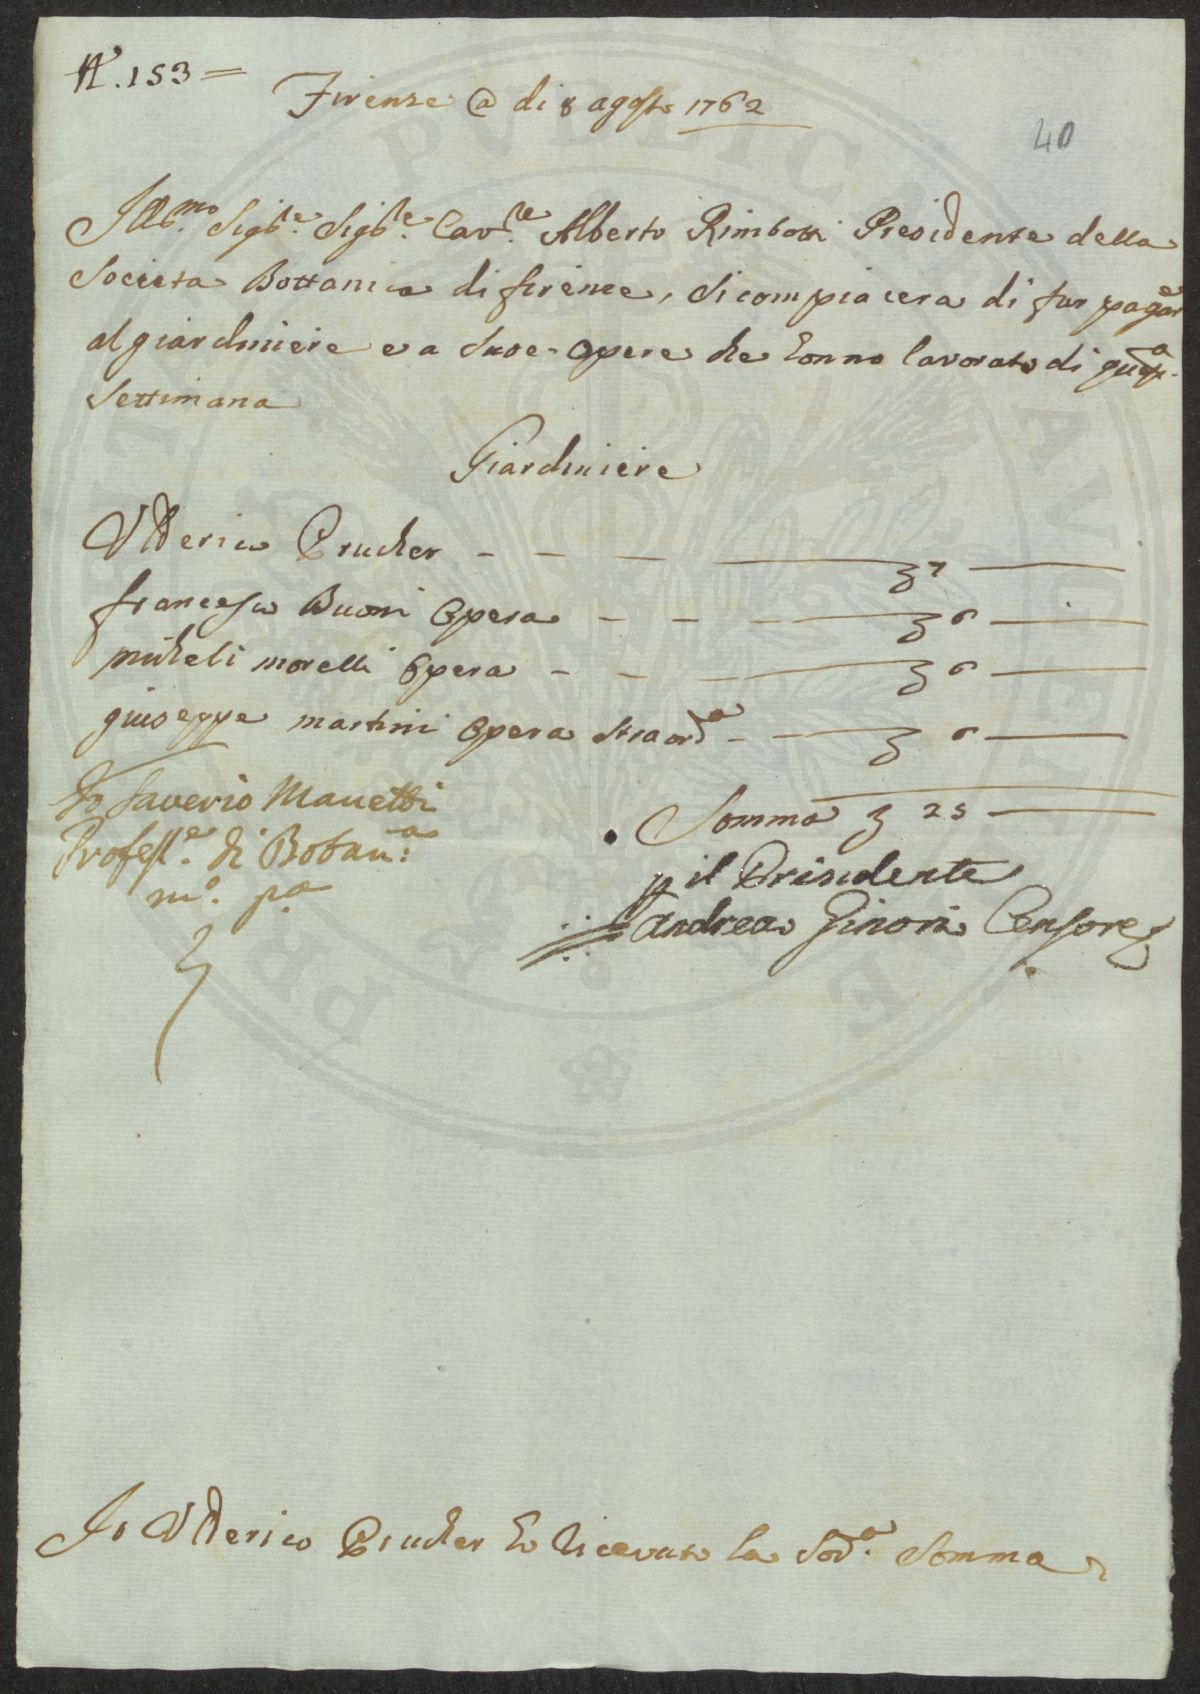 N.° 153 =
Firenze @ di 8 agosto 1762
40
Ill.mo Sig.re Sig.re Cav.re Alberto Rimbotti Presidente della
Societa Bottanica di firence, si compiacera di far pagare
al giardiniere e a Suoe Opere che honno lavorato di quest.a
Settimana
Giardiniere
Ulderico Prucher - - - 7
francesco Buoni Opera - - - 6
micheli morelli Opera - - - 6
giuseppe martini Opera straord.a - - 6
Io Saverio Manetti
Profess.e di Botan.a
m.o p.a
Somma 25
p il Presidente
Andrea Ginori Censore
Io Ulderico Prucher ho Ricevuto la Sod.a Somma